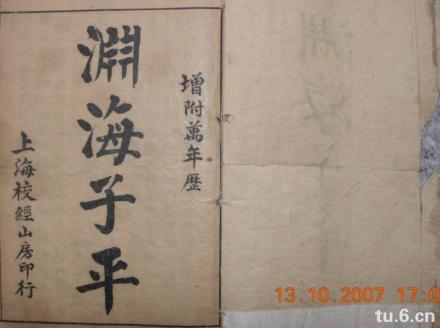 增附萬年歴
淵海子平
上海校經山房印行
13.10.2007 17:0
tu.6.cn